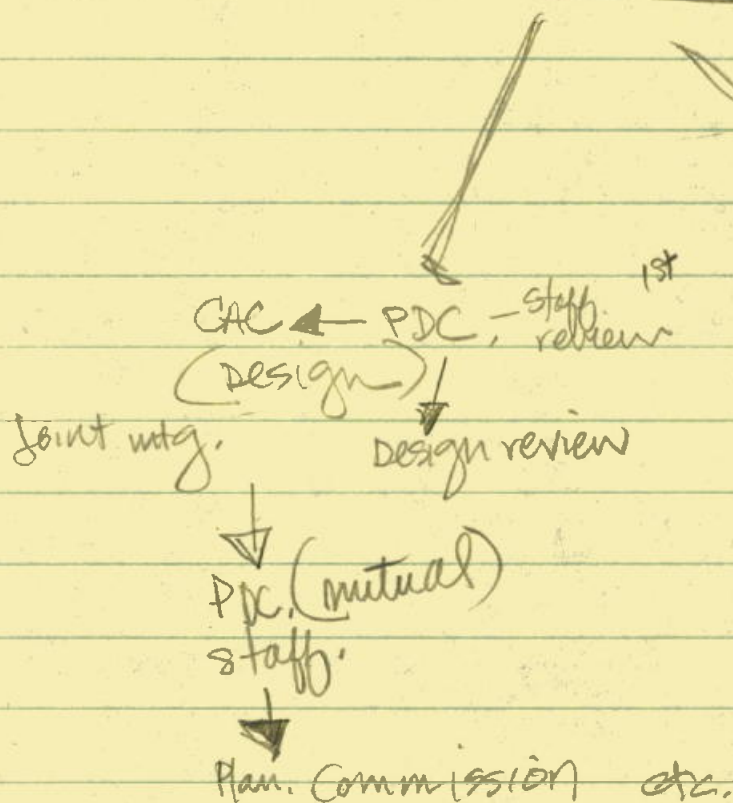 1st
CAC PDC. - staff review
(Design)
Joint mtg. Design review
PDC. (mutual)
staff.
Plan. Commission etc.